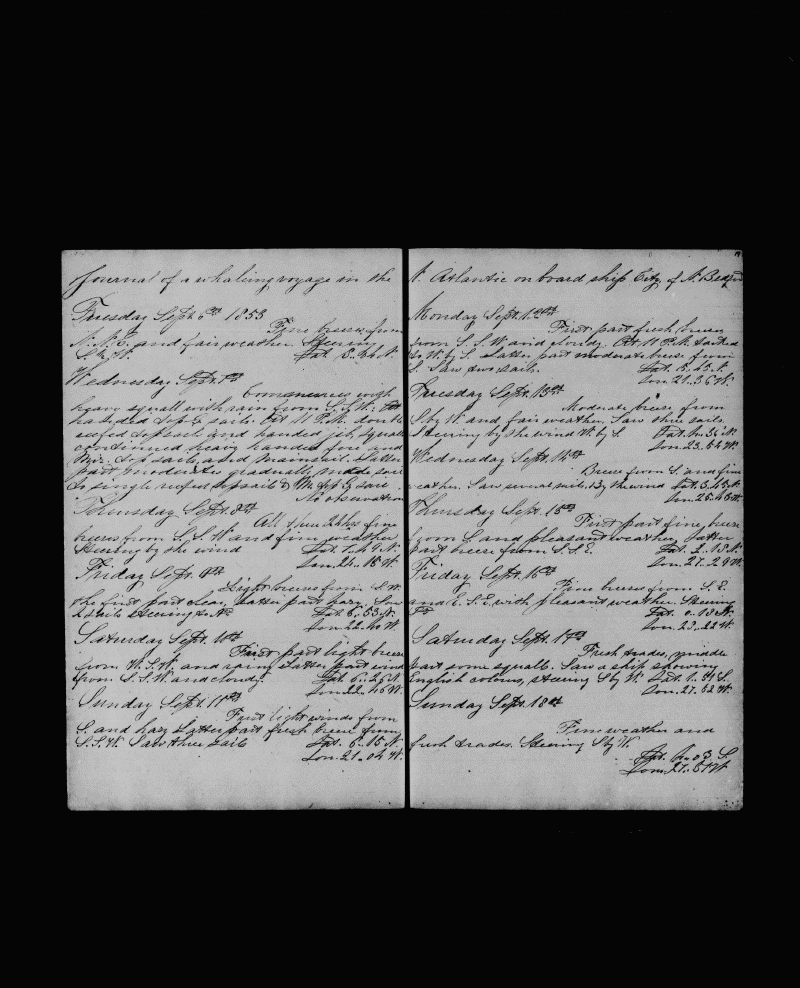 Journal of a whaling voyage in the
Tuesday Sept. 6th 1853
Fine breeze from
N.N.E. and fair weather. Steering
S by W. Lat. 8.
Wednesday Sept. 7th
Commences with
heavy squall with rain from S.S.W.
handed top g sails. At 11 P.M. double
reefed topsails and handed jib, squall
continued heavy handed fore and
top sails, and mainsail. Latter
part moderate gradually made sail
to single reefed topsails & M. top g sail
No observation
Thursday Sept. 8th
All these 24 hrs fine
breeze from S.S.W. and fine weather
Steering by the wind Lat. 7.49 N.
Lon. 21.18 W.
Friday Sept. 9th
Light breeze from S.W.
the first part clear, latter part hazy. Saw
2 sails steering to N. Lat. 6.53 N.
Lon. 22.40 W.
Saturday Sept. 10th
First part light breeze
from W.S.W. and rainy Latter part wind
from S.S.W. and cloudy. Lat. 6.25 N.
Lon. 22.46 W.
Sunday Sept. 11th
First light winds from
S. and hazy Latter part fresh breeze from
S.S.W. Saw three sails Lat. 6.15 N.
Lon. 21.04 W.
N. Atlantic on board ship City of N. Bedford
Monday Sept. 12th
First part fresh breeze
from S.S.W. and cloudy. At 11 P.M. tacked
to W. by S. Latter part moderate breeze from
S. Saw two sails. Lat. 5.45 N.
Lon. 21.36 W.
Tuesday Sept. 13th
Moderate breeze from
S by W. and fair weather. Saw three sails.
Steering by the wind W. by S. Lat. 4. N.
Lon. 23.54 W.
Wednesday Sept. 14th
Breeze from S. and fine
weather. Saw several sail. By the wind Lat. 3.43 N.
Lon. 25.43 W.
Thursday Sept. 15th
First part fine breeze
from S. and pleasant weather, latter
part breeze from S.S.E. Lat. 2.18 N.
Lon. 27.29 W.
Friday Sept. 16th
Fine breeze from S.E.
and E.S.E. with pleasant weather. Steering
Lat. 0.18 N.
Lon. 23.22 W.
Saturday Sept. 17th
Fresh trades, middle
part some squalls. Saw a ship showing
English colours, steering S by W. Lat. 1.51 S.
Lon. 27.52 W.
Sunday Sept. 18th
Fine weather and
fresh trades. Steering S by W.
Lat. 4.03 S.
Lon. 27.51 W.